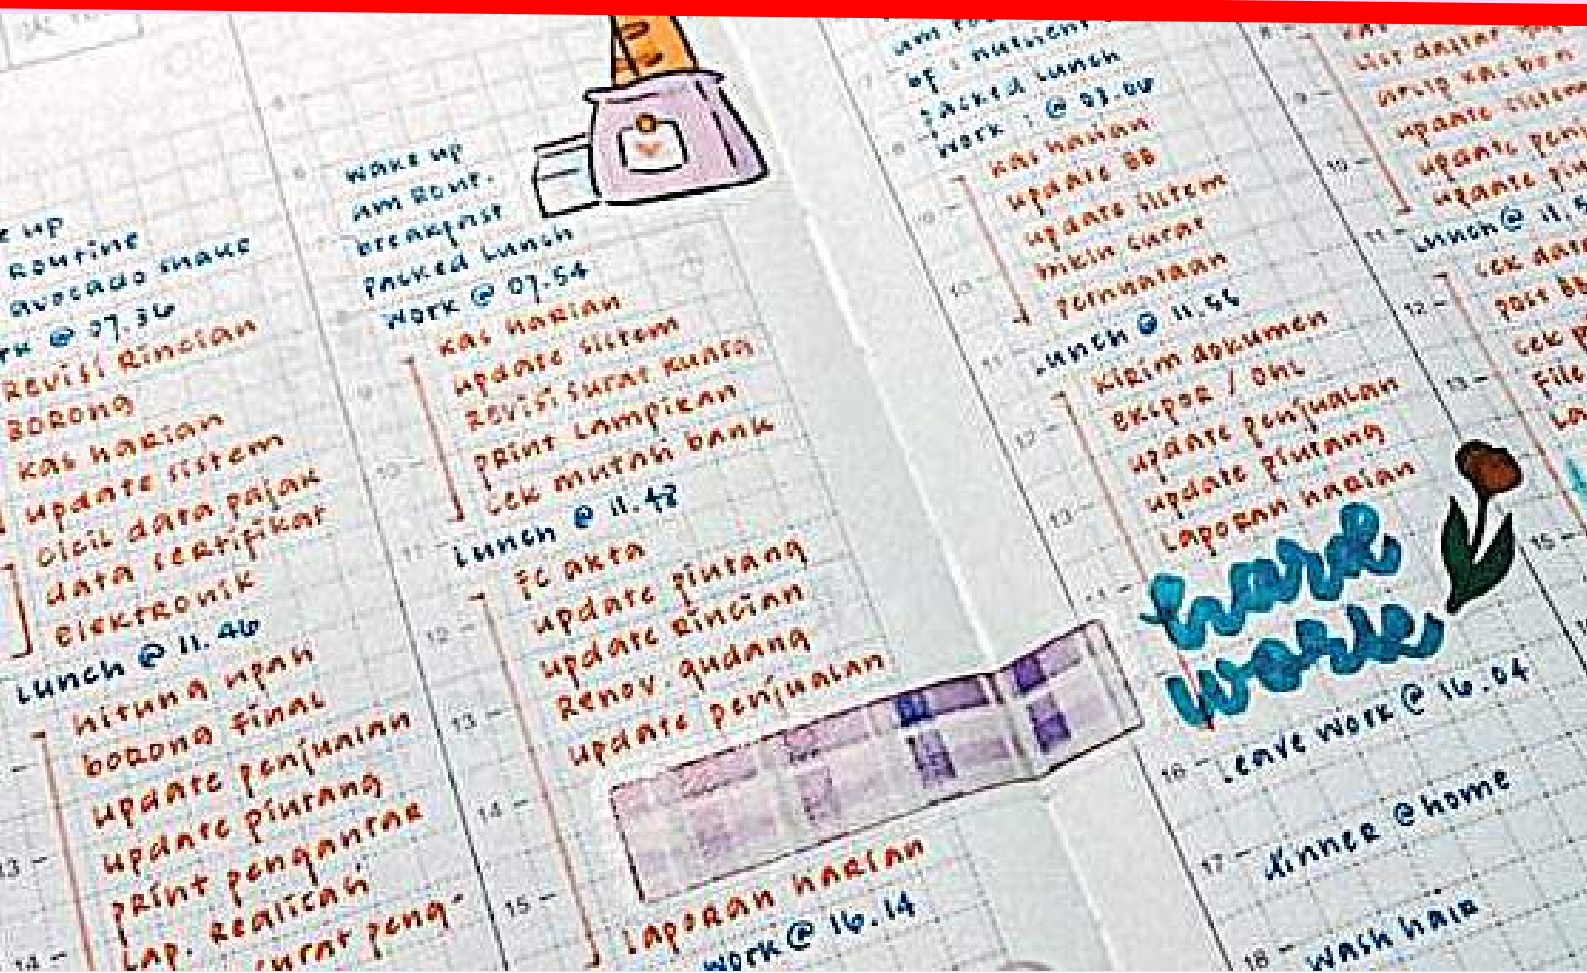 e up
Routine
avocado shake
rk @ 07.36
Revisi Rincian
BORONG
Kas harian
update sistem
cicil data pajak
data sertifikat
elektronik
Lunch @ 11.46
hitung upah
borong final
update penjualan
update piutang
print pengantar
Lap. Realisasi
surat peng-
13
14
6
wake up
am Rout.
breakfast
packed Lunch
Work @ 07.54
kas harian
update sistem
Revisi surat kuasa
print Lampiran
cek mutasi bank
Lunch @ 11.48
FC akta
update piutang
update Rincian
Renov. gudang
update penjualan
Laporan harian
work @ 16.14
9
10
11
12
13
14
15
of : nutrient
packed Lunch
Work : @ 07.06
kas harian
update BB
update sistem
bikin surat
pernyataan
Lunch @ 11.55
Kirim dokumen
Ekspor / DHL
update penjualan
update piutang
Laporan harian
hard
work
Leave work @ 16.04
dinner @ home
wash hair
7
8
9
10
11
12
13
16
17
18
List daftar
arsip kas bon
update sistem
update penj
update piu
Lunch @ 11.5
cek data
post BB
cek p
File
La
9
10
11
12
13
15